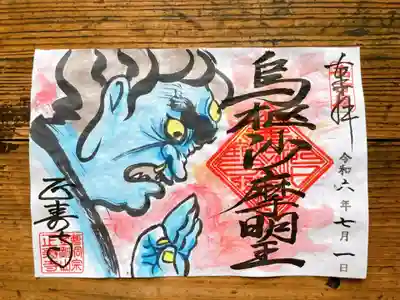 奉拝
令和六年七月一日
烏枢沙摩明王
曹洞宗